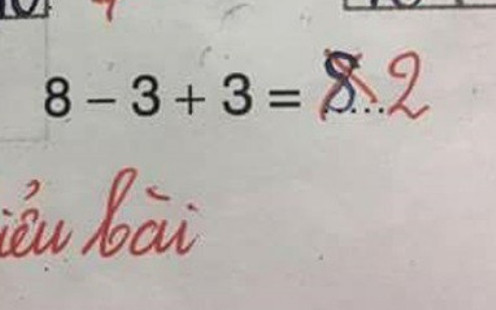 8 – 3 + 3 = 8 2
iểu bài